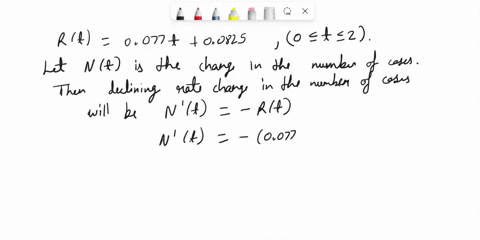 R(t) = 0.077t + 0.0825 , (0 ≤ t ≤ 2).
Let N(t) is the change in the number of cases.
Then declining rate change in the number of cases
will be N'(t) = - R(t)
N'(t) = - (0.077